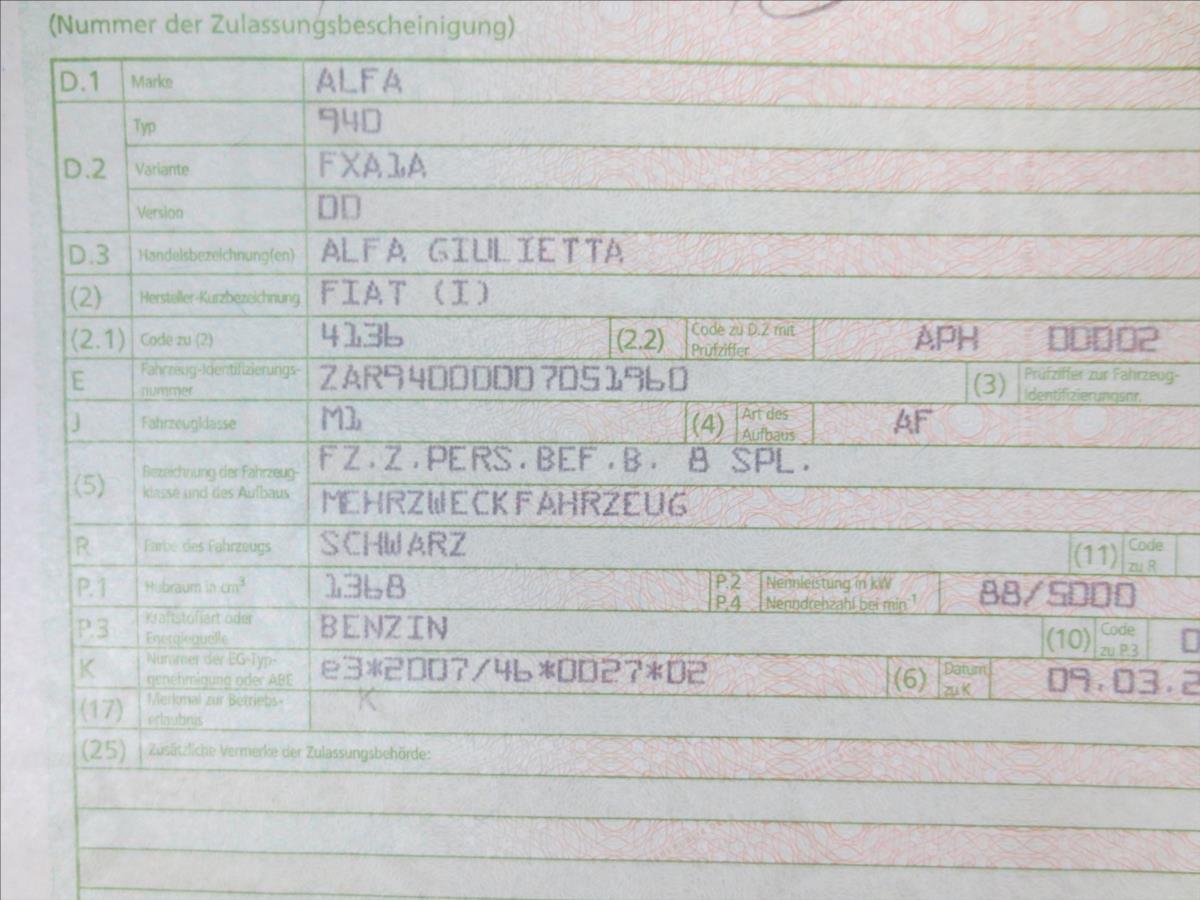 (Nummer der Zulassungsbescheinigung)
D.1 Marke ALFA
Typ 940
D.2 Variante FXA1A
Version 00
D.3 Handelsbezeichnung(en) ALFA GIULIETTA
(2) Hersteller-Kurzbezeichnung FIAT (I)
(2.1) Code zu (2) 4136 (2.2) Code zu D.2 mit Prüfziffer APH 00002
E Fahrzeug-Identifizierungs-
nummer ZAR94000007051960 (3) Prüfziffer zur Fahrzeug-
Identifizierungsnr.
J Fahrzeugklasse M1 (4) Art des Aufbaus AF
(5) Bezeichnung der Fahrzeug-
klasse und des Aufbaus FZ.Z.PERS.BEF.B. 8 SPL.
MEHRZWECKFAHRZEUG
R Farbe des Fahrzeugs SCHWARZ (11) Code zu R
P.1 Hubraum in cm³ 1368 P.2 Nennleistung in kW
P.4 Nenndrehzahl bei min⁻¹ 88/5000
P.3 Kraftstoffart oder
Energiequelle BENZIN (10) Code zu P.3 0
K Nummer der EG-Typ-
genehmigung oder ABE e3*2007/46*0027*02 (6) Datum zu K 09.03.2
(17) Merkmal zur Betriebs-
erlaubnis K
(25) Zusätzliche Vermerke der Zulassungsbehörde: